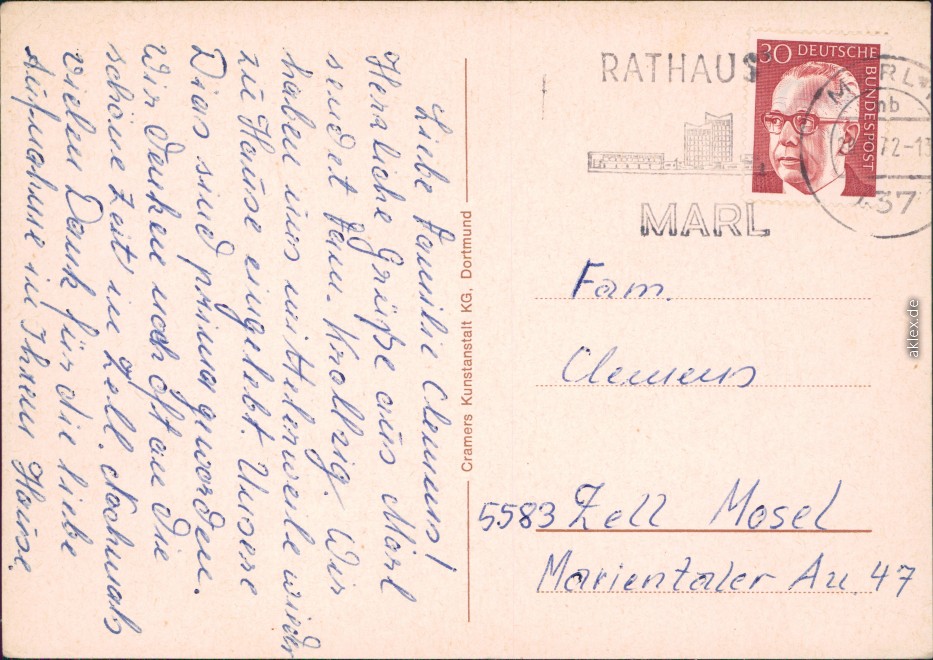 Liebe Familie Clemens!
Herzliche Grüße aus Marl
sendet Fam. Knollzig. Wir
haben uns mitlerweile wieder
zu Hause eingelebt. Unsere
Dias sind prima geworden.
Wir denken noch oft an die
schöne Zeit in Zell. Nochmals
vielen Dank für die liebe
Aufnahme in Ihrem Hause.
Cramers Kunstanstalt KG, Dortmund
RATHAUS
MARL
30 DEUTSCHE
BUNDESPOST
MARL
mb
72-13
437
Fam.
Clemens
5583 Zell Mosel
Marientaler Au. 47
aklex.de